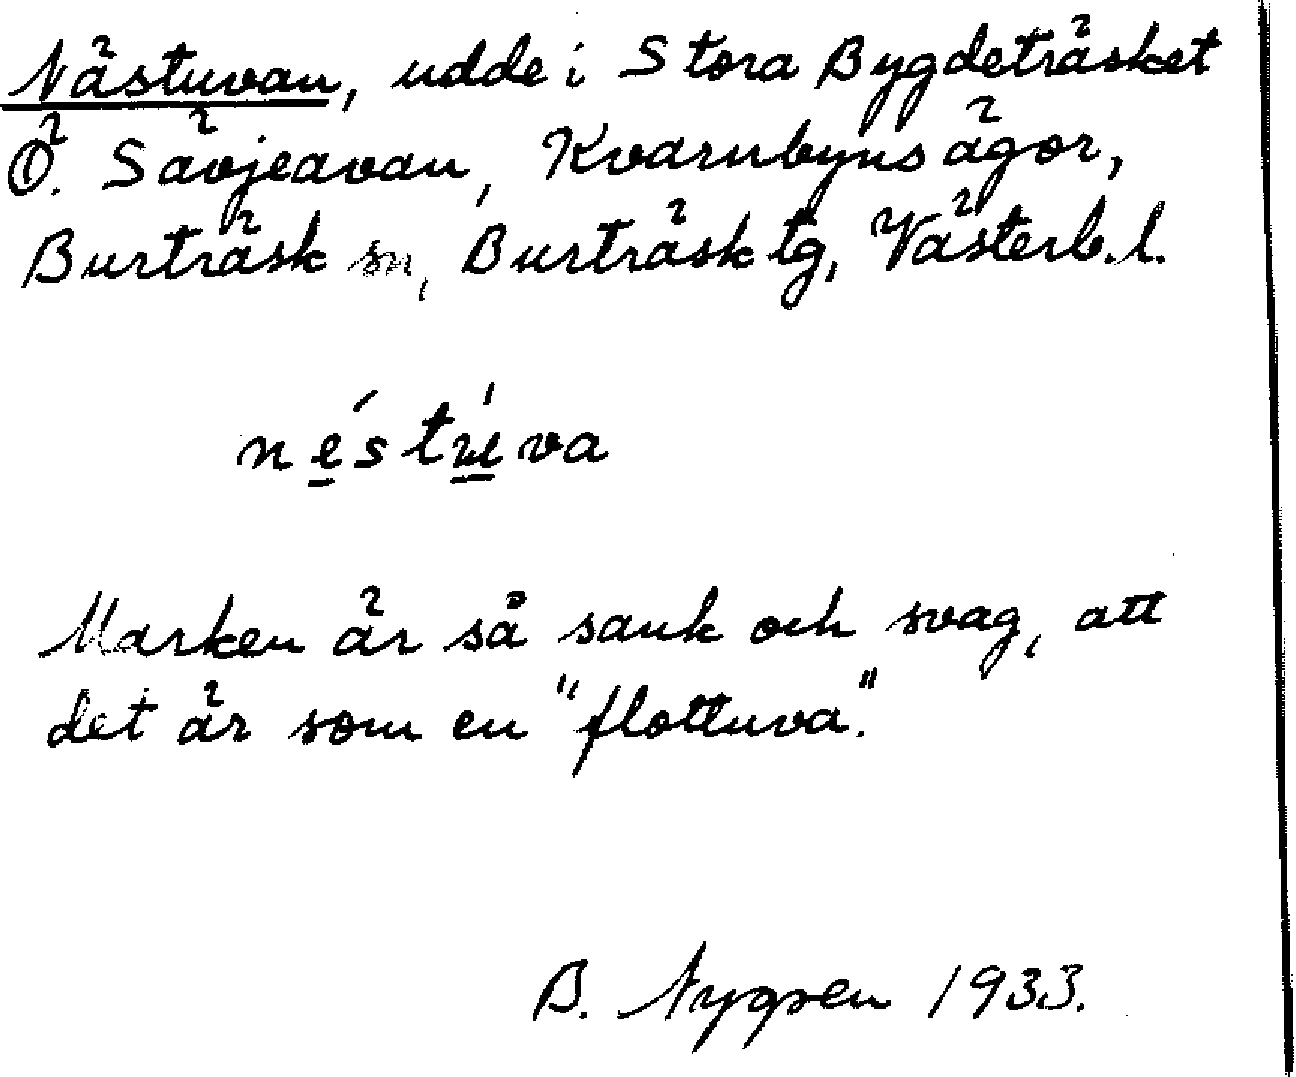 Nästuvan, udde i Stora Bygdeträsket
Ö. Sävjeavan, Kvarnbyns ägor,
Burträsk sn, Burträsk tg, Västerb. l.
néstúva
Marken är så sank och svag, att
det är som en "flottuva."
B. Nygren 1933.